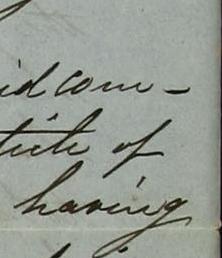 id com-
ticle of
having